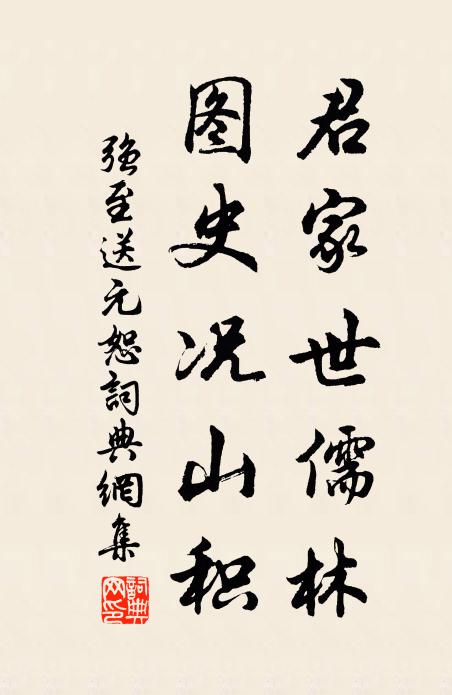 君家世儒林
图史况山积
強至送元恕詞典網集
詞典
网印